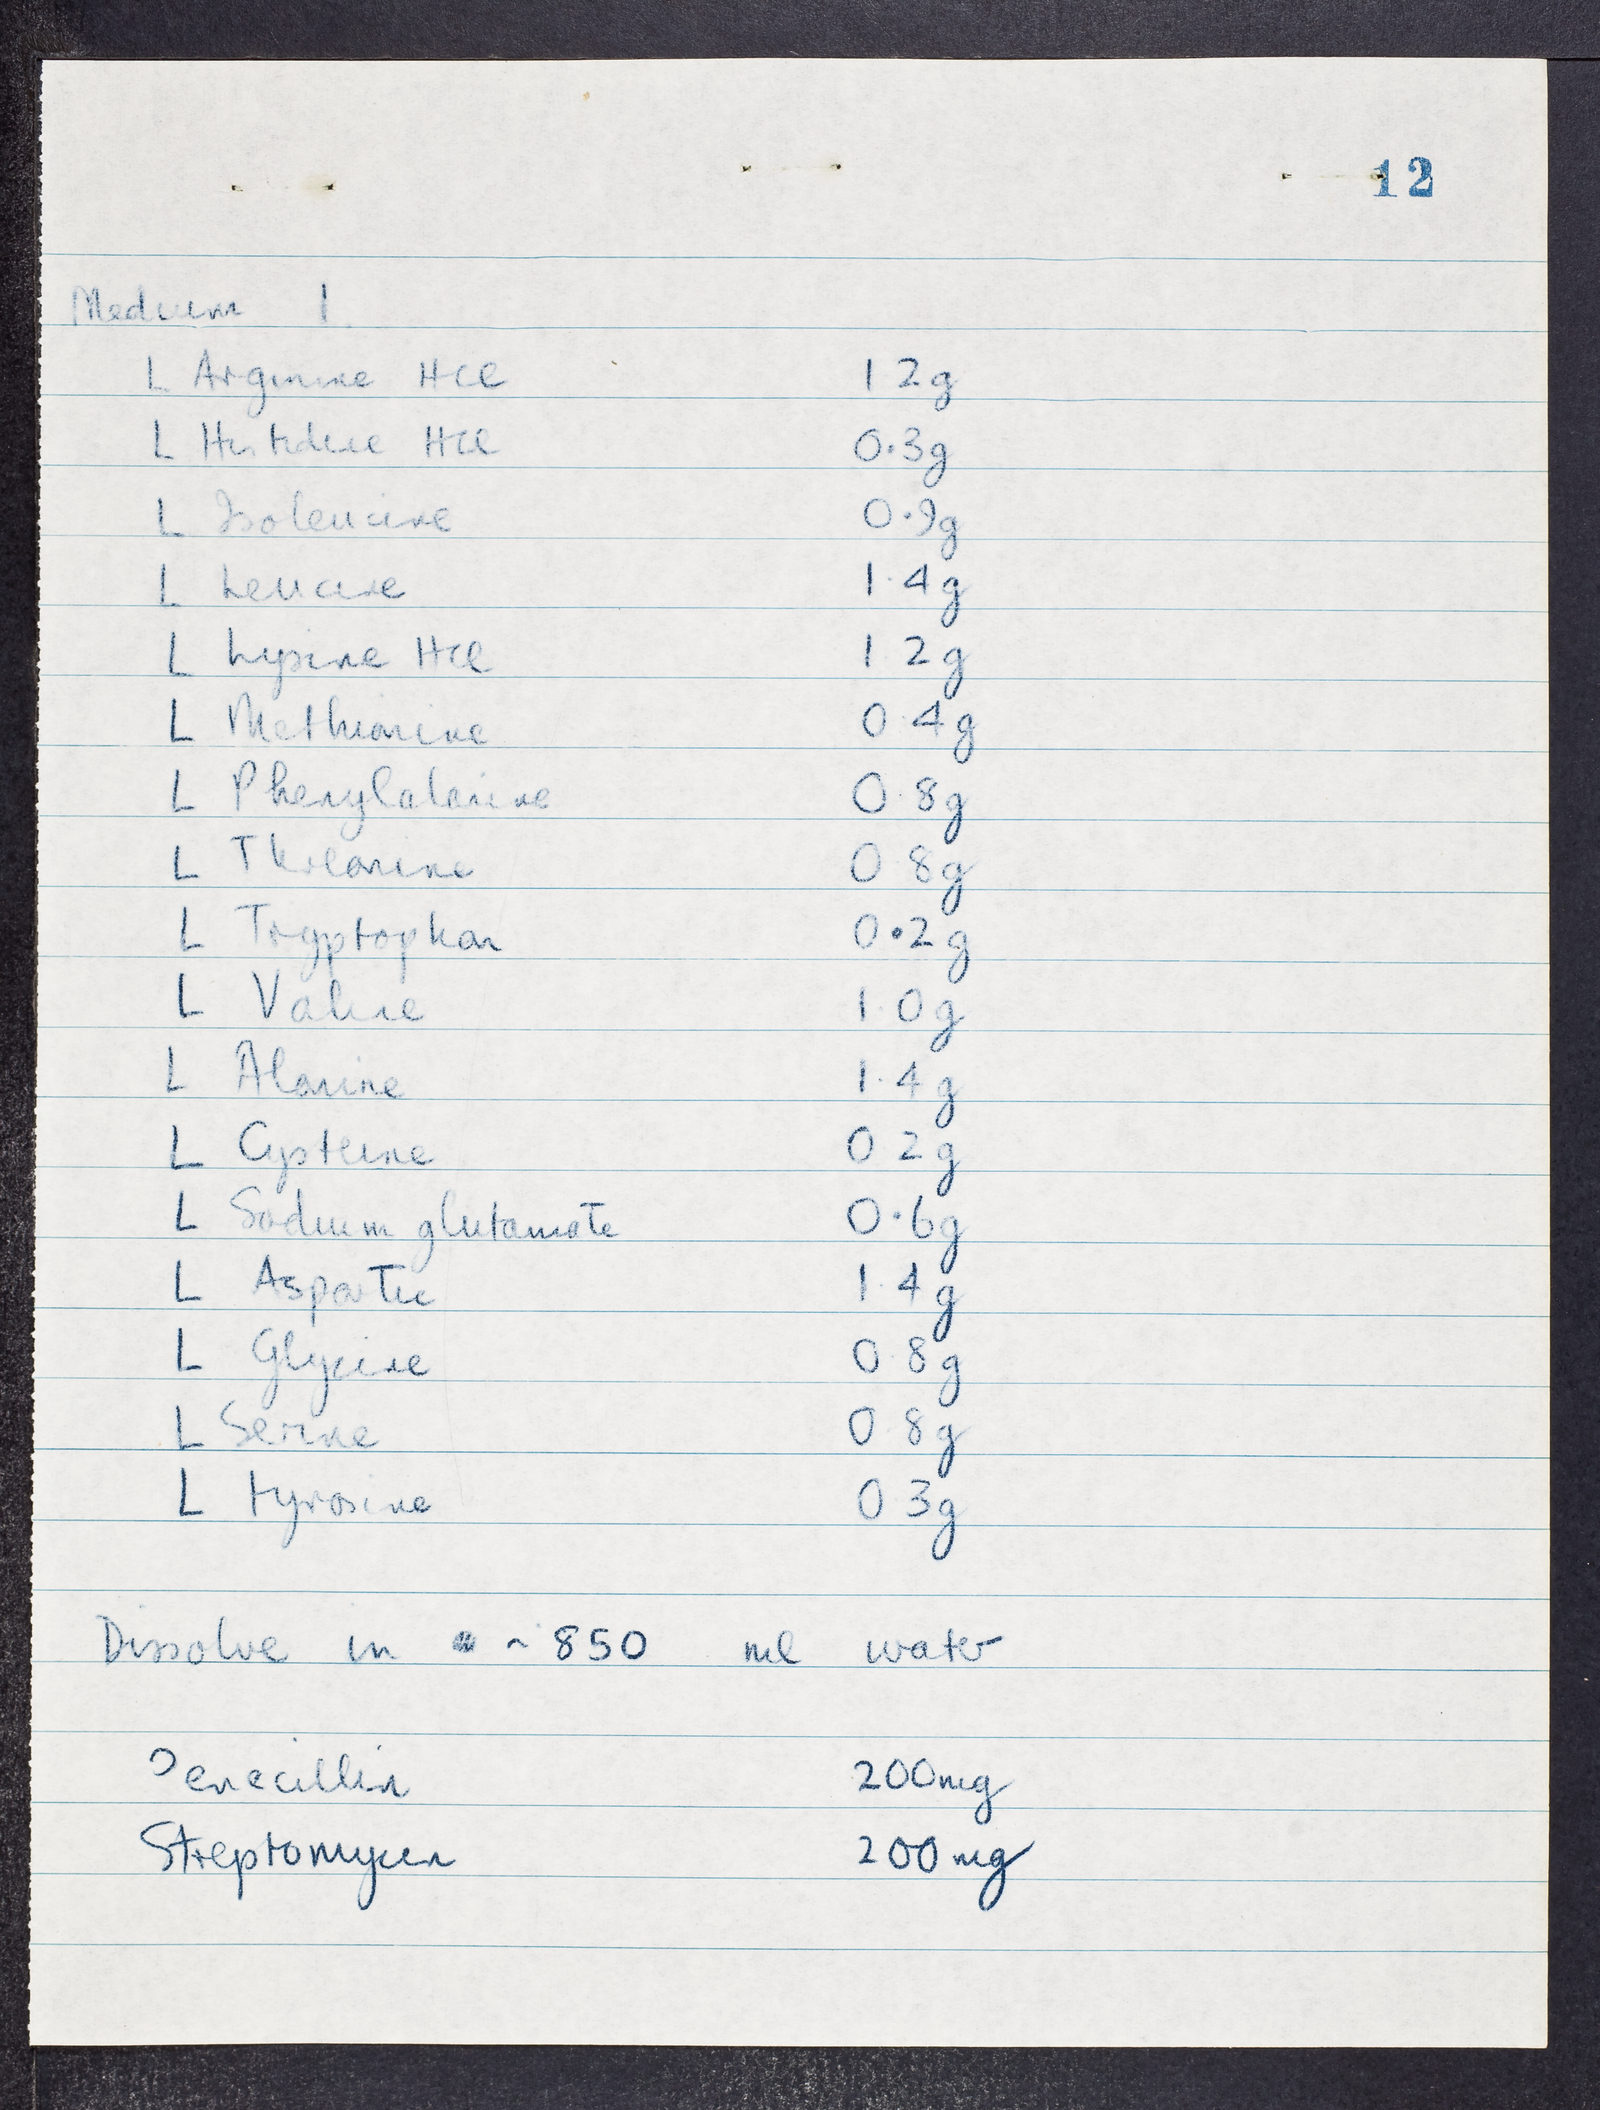 12
Medium 1.
L Arginine HCl 1 2g
L Histidine HCl 0.3g
L Isoleucine 0.9g
L Leucine 1.4g
L Lysine HCl 1.2g
L Methionine 0.4g
L Phenylalanine 0.8g
L Threonine 0.8g
L Tryptophan 0.2g
L Valine 1.0g
L Alanine 1.4g
L Cysteine 0.2g
L Sodium glutamate 0.6g
L Aspartic 1.4g
L Glycine 0.8g
L Serine 0.8g
L tyrosine 0.3g
Dissolve in ~850 ml water
Penecillin 200mg
Streptomycin 200mg